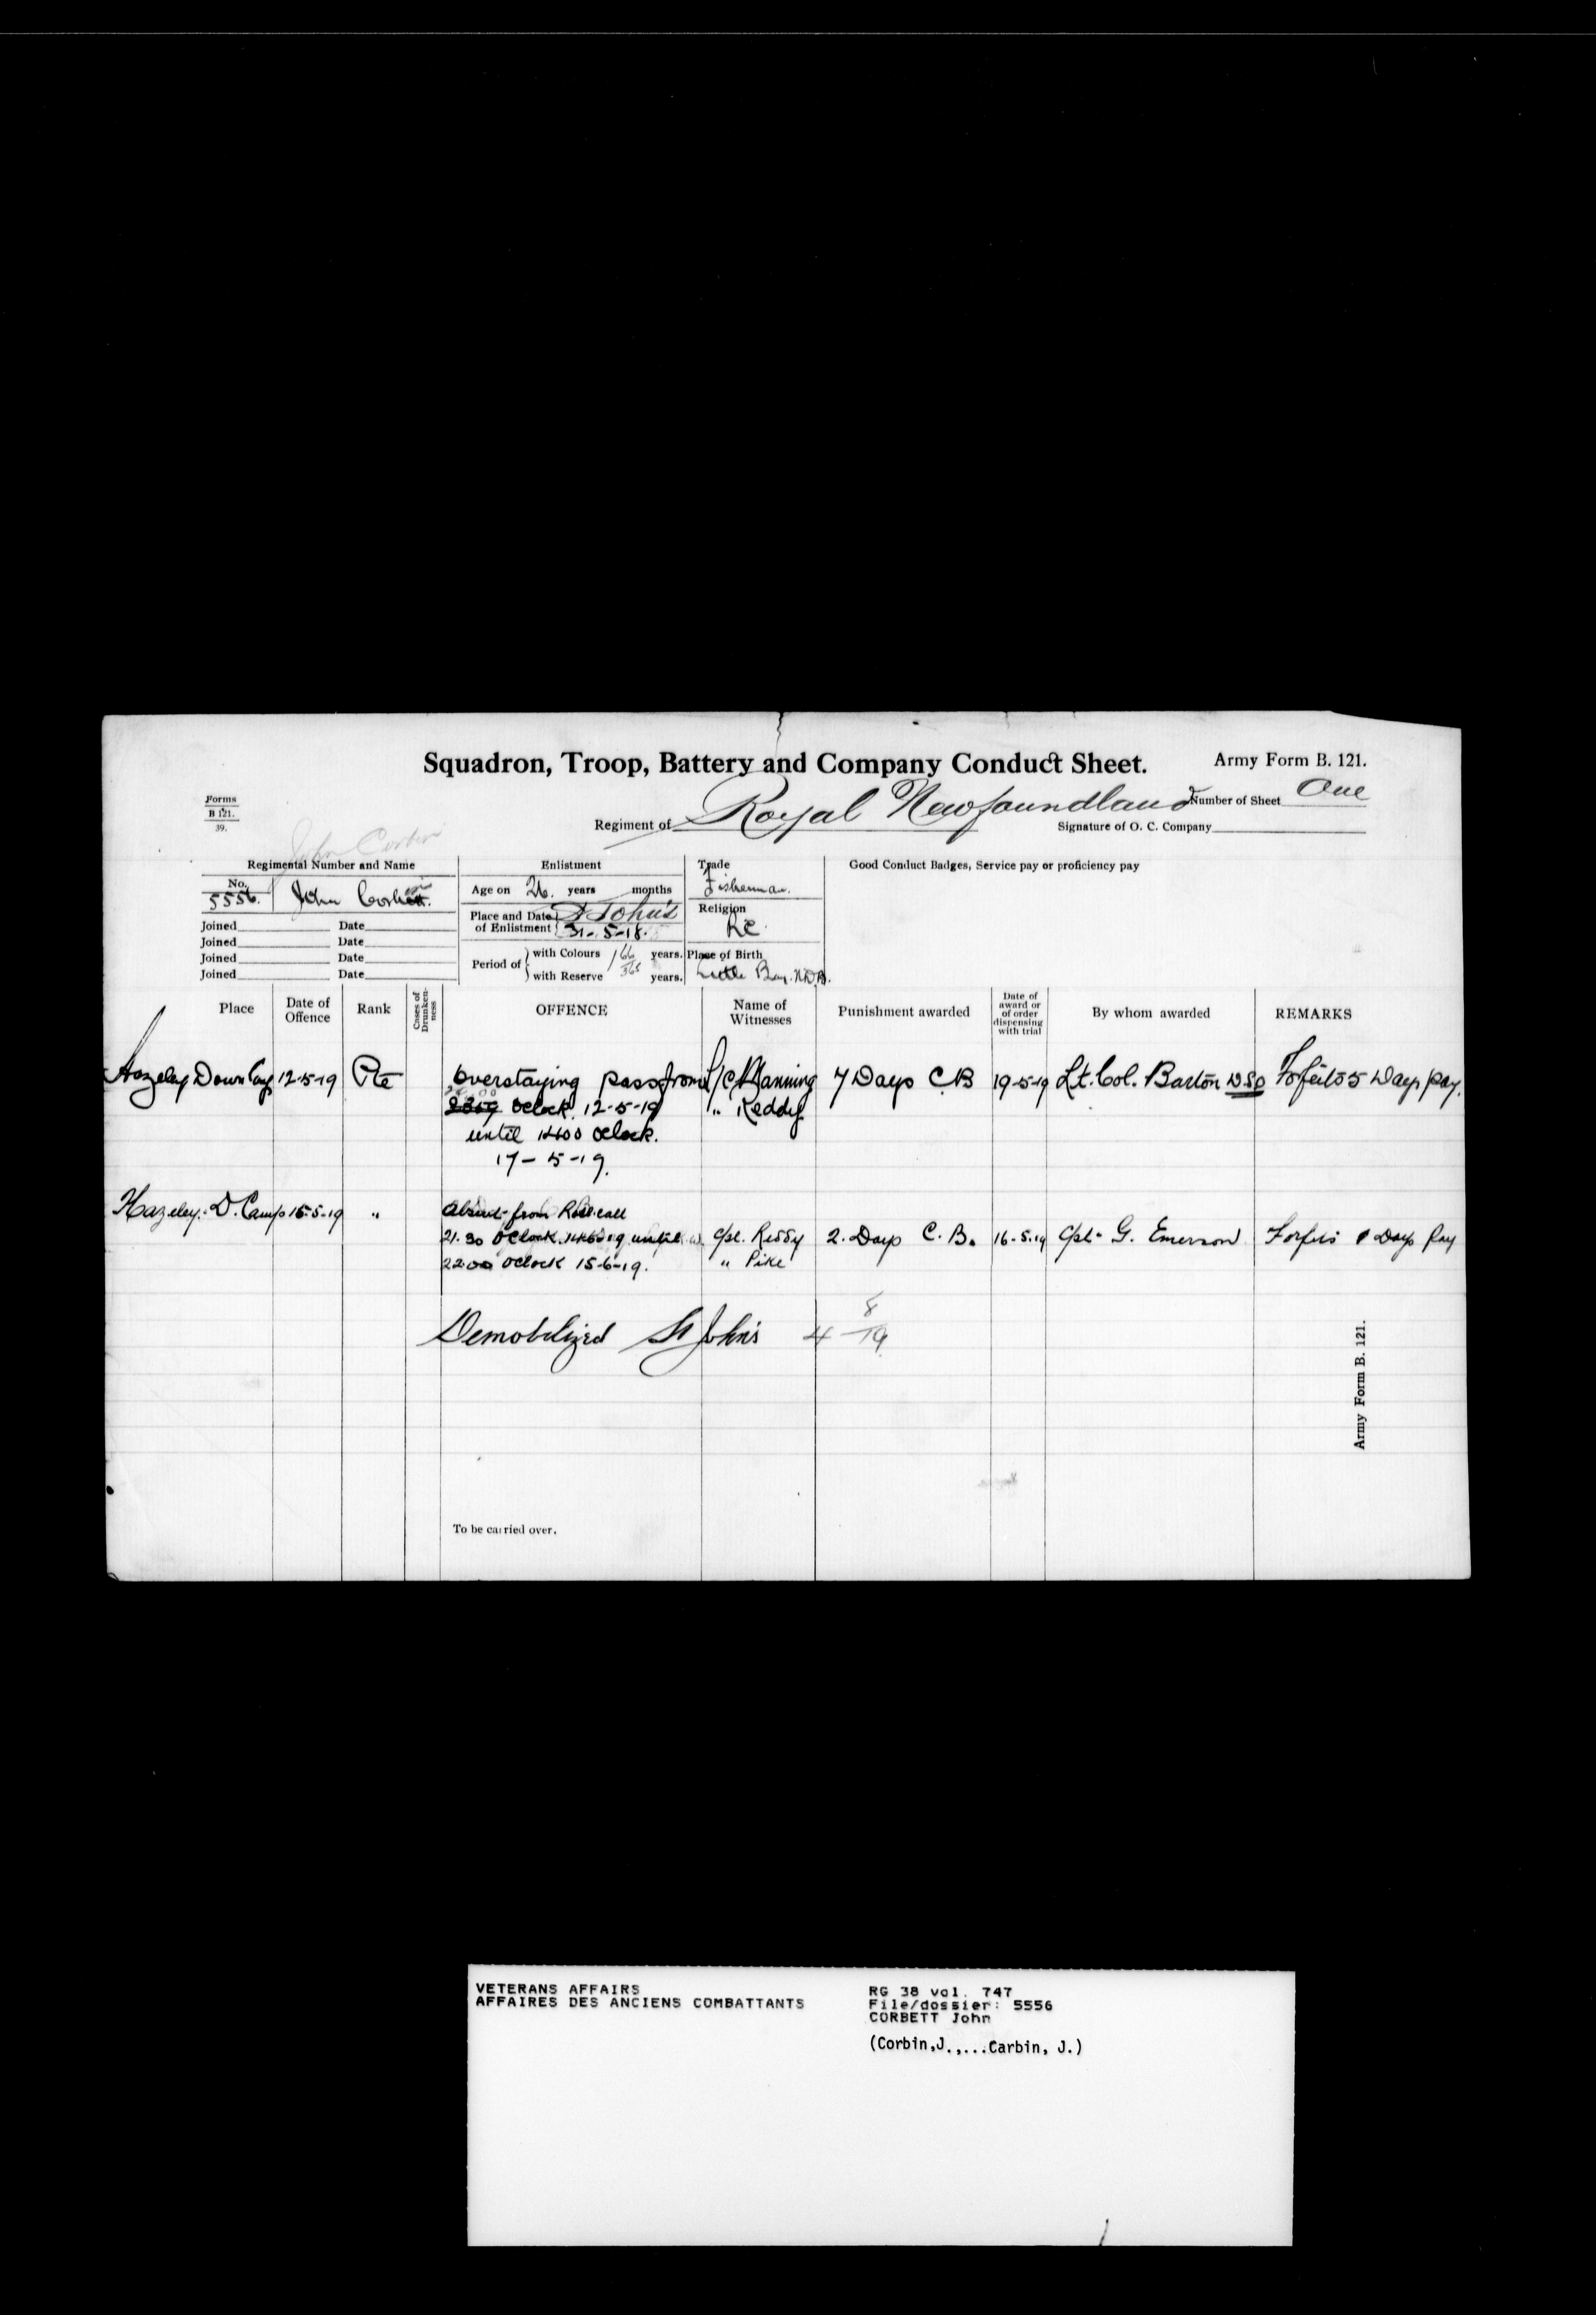 Squadron, Troop, Battery and Company Conduct Sheet.
Army Form B. 121.
Forms
B 121.
39.
Regiment of Royal Newfoundland
Number of Sheet One
Signature of O. C. Company
John Corbin
Regimental Number and Name
No. 5556. John Corbett.
Joined Date
Joined Date
Joined Date
Joined Date
Enlistment
Age on 26. years months
Place and Date of Enlistment St Johns 31-5-18.
Period of with Colours 1 66/365 years.
with Reserve years.
Trade
Fisherman.
Religion
RC.
Place of Birth
Little Bay. N.D.B.
Good Conduct Badges, Service pay or proficiency pay
Place
Date of Offence
Rank
Cases of Drunkenness
OFFENCE
Name of Witnesses
Punishment awarded
Date of award or of order dispensing with trial
By whom awarded
REMARKS
Hazeley Down Camp 12-5-19 Pte Overstaying pass from L/C Manning 7 Days CB 19-5-19 Lt. Col. Barton DSO Forfeits 5 Days pay.
oclock. 12-5-19 " Reddy
until 1400 oclock.
17-5-19.
Hazeley. D. Camp 15-5-19 " Absent from Roll call
21.30 Oclock until Cpl. Reddy 2. Days C. B. 16-5-19 Cpt. G. Emerson Forfeits 1 Days Pay
2200 oclock 15-6-19. " Pike
Demobilized St John's 4 8/19
To be carried over.
Army Form B. 121.
VETERANS AFFAIRS
AFFAIRES DES ANCIENS COMBATTANTS
RG 38 vol. 747
File/dossier: 5556
CORBETT John
(Corbin,J.,...Carbin, J.)